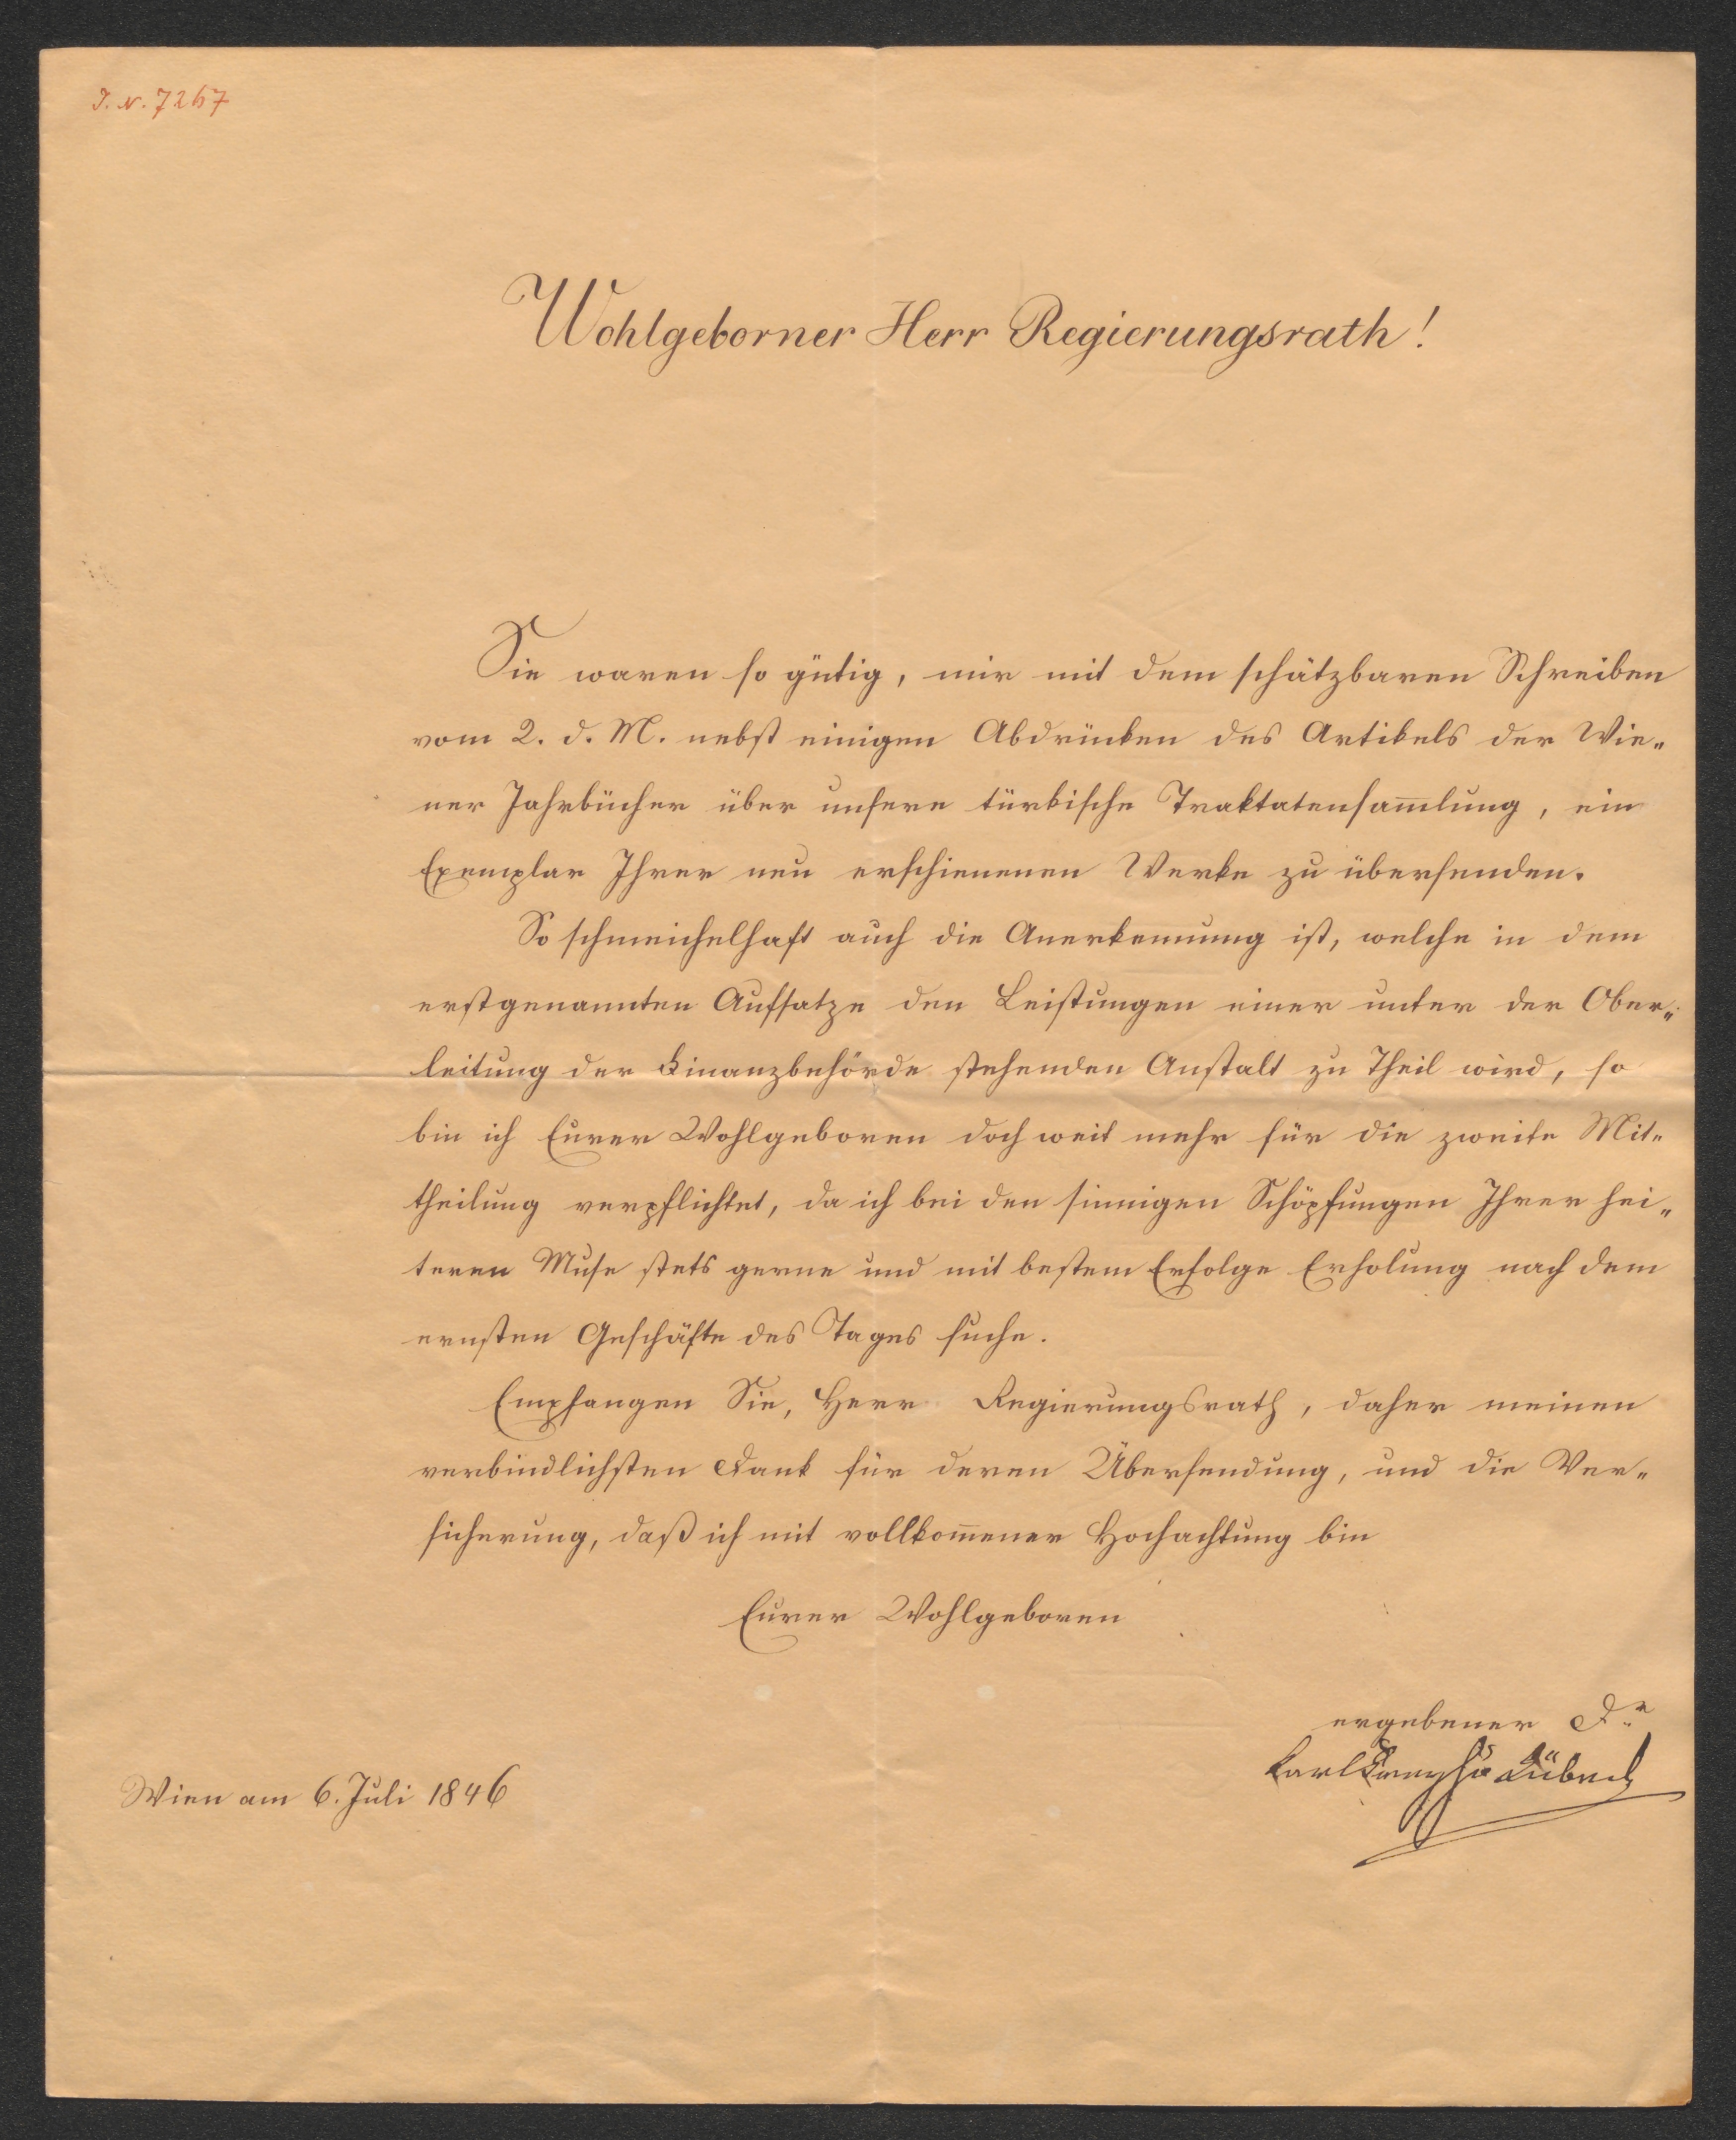 I. N. 7267
Wohlgeborner Herr Regierungsrath!
Sie waren so gütig, mir mit dem schätzbaren Schreiben
vom 2. d. M. nebst einigen Abdrücken des Artikels der Wie„
ner Jahrbücher über unsere türkische Traktatensam̅lung, ein
Exemplar Ihrer neu erschienenen Werke zu übersenden.
So schmeichelhaft auch die Anerkennung ist, welche in dem
erstgenannten Aufsatze den Leistungen einer unter der Ober„
leitung der Finanzbehörde stehenden Anstalt zu Theil wird, so
bin ich Eurer Wohlgeboren doch weit mehr für die zweite Mit„
theilung verpflichtet, da ich bei den sinnigen Schöpfungen Ihrer hei„
teren Muse stets gerne und mit bestem Erfolge Erholung nach dem
ernsten Geschäfte des Tages suche.
Empfangen Sie, Herr Regierungsrath, daher meinen
verbindlichsten Dank für deren Übersendung, und die Ver„
sicherung, daß ich mit vollkom̅ener Hochachtung bin
Eurer Wohlgeboren
ergebener Dr
Karl Kübeck
Wien am 6. Juli 1846